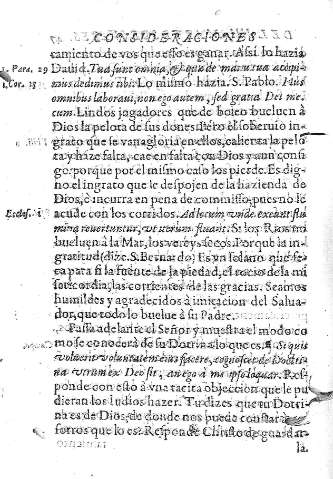 CONSIDERACIONES
tamiento de vos que esso es ganar. Assi lo hazia
1. Para. 29 Dauid. Tua sunt omnia, & quæ de manu tua accepi-
1. Cor. 15 mus dedimus tibi. Lo mismo hazia. S. Pablo. Plus
omnibus laboraui, non ego autem, sed gratia Dei me-
cum. Lindos jugadores que de boleo bueluen à
Dios la pelota de sus dones. Pero el soberuio in-
grato que se vanagloria en ellos, calienta la pelo
ta y haze falta, cae en falta con Dios y aun consi
go: porque por el mismo caso los pierde. Es dig-
no el ingrato que le despojen de la hazienda de
Dios, è incurra en pena de comisso, pues no le
Eccles. 1 acude con los corridos. Ad locum vnde exeunt flu
mina reuertuntur, vt iterum fluant. Si los Rios no
bueluen à la Mar, los vereys secos. Porque la in-
gratitud (dize S. Bernardo) Es vn solano que se
ca para si la fuente de la piedad, el rocio de la mi
sericordia, las corrientes de las gracias. Seamos
humildes y agradecidos à imitacion del Salua-
dor, que todo lo buelue à su Padre.
Passa adelante el Señor y muestra el modo co
mo se conocerà de su Dotrina lo que es. Si quis
voluerit voluntatem eius facere, cognoscet de Doctri
na vtrum ex Deo sit, an ego à me ipso loquar. Res-
ponde con esto à vna tacita objeccion que le pu
dieran los Iudios hazer. Tu dizes que tu Dotri
na es de Dios, de donde nos puede constar à
sotros que lo es? Responde Christo de guardar-
la.